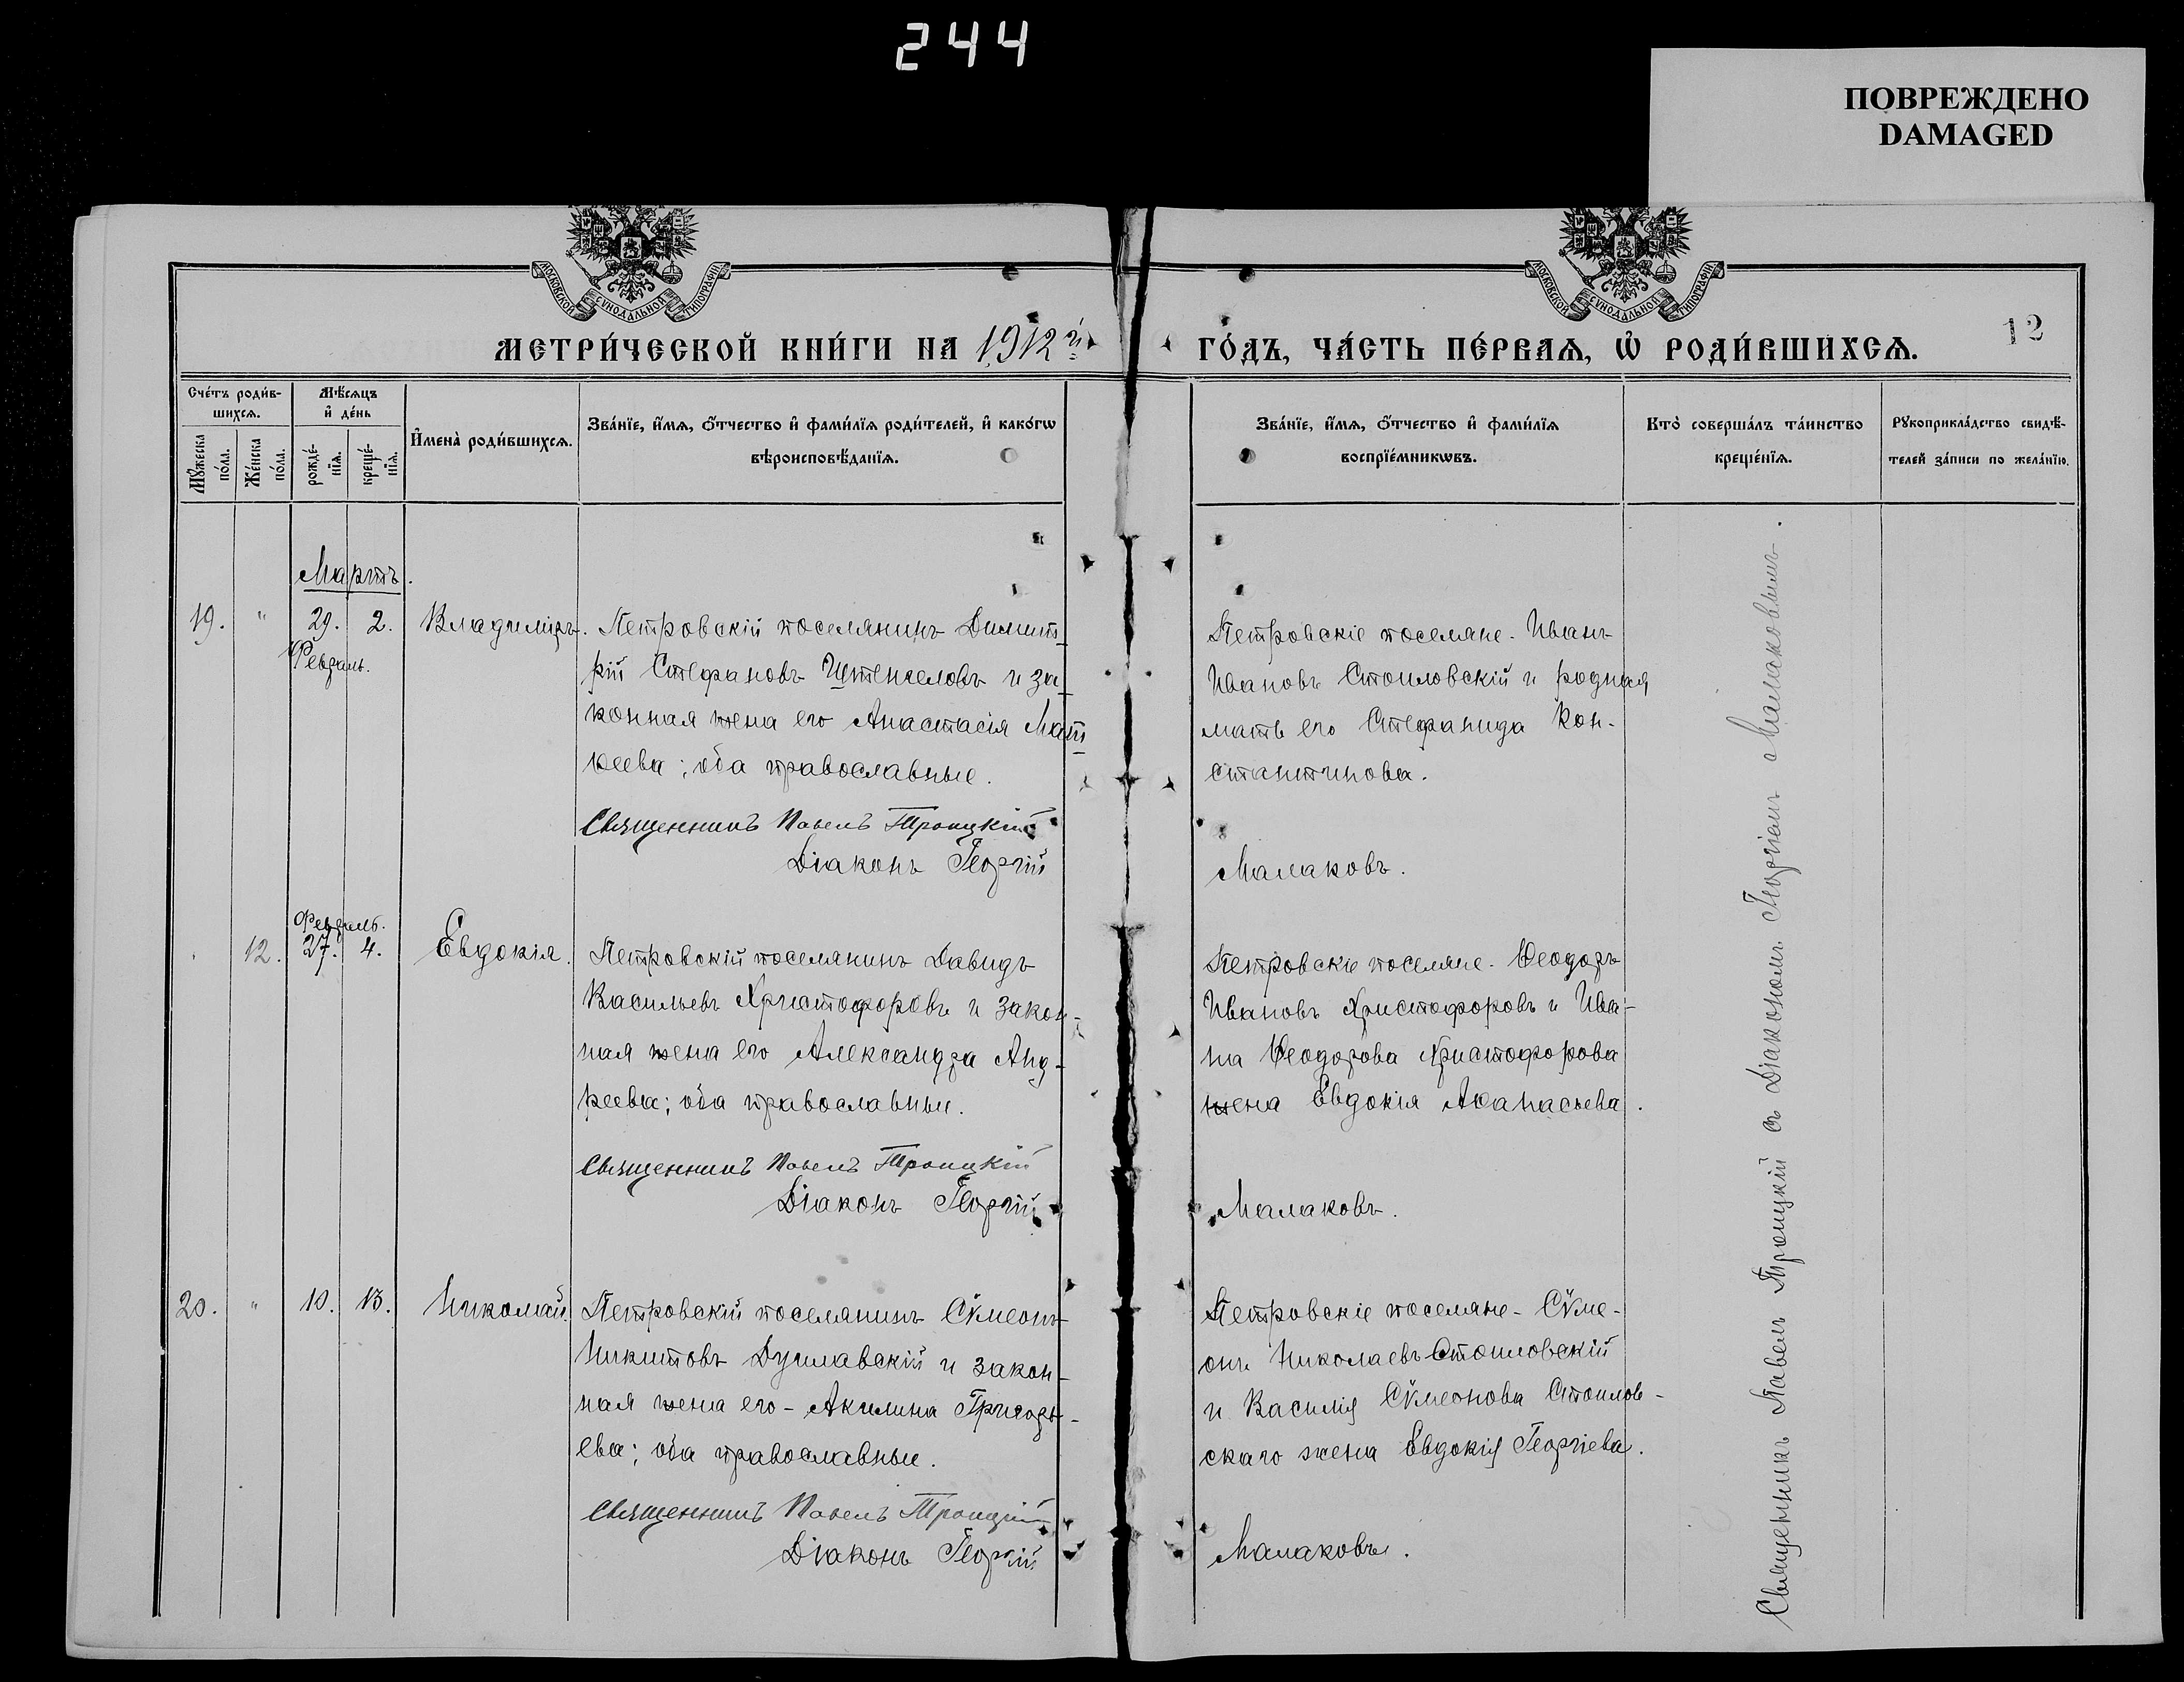 244
ПОВРЕЖДЕНО
DAMAGED
МОСКОВСКОЙ СѴНОДАЛЬНОЙ ТИПОГРАФІИ
МОСКОВСКОЙ СѴНОДАЛЬНОЙ ТИПОГРАФІИ
МЕТРИ́ЧЕСКОЙ КНИ́ГИ НА 1912й
ГО́ДЪ, ЧА́СТЬ ПЕ́РВАЯ, Ѡ҆ РОДИ́ВШИХСЯ.
12
Сче́тъ роди́в-
шихся.
Мꙋ́жеска по́ла.
Же́нска по́ла.
Мѣ́сяцъ
и҆ де́нь
рожде́-нїя.
креще́-нїя.
И҆мена̀ роди́вшихся.
Зва́нїе, и҆́мя, ѻ҆́тчество и҆ фами́лїя роди́телей, и҆ како́гѡ
вѣроисповѣ́данїя.
Зва́нїе, и҆́мя, ѻ҆́тчество и҆ фами́лїя
воспрїе́мникѡвъ.
Кто̀ соверша́лъ та́инство
креще́нїя.
Рꙋкоприкла́дство свидѣ́-
телей за́писи по жела́нїю.
Мартъ.
19. " 29. 2. Владиміръ.
Февраль.
Петровскій поселянинъ Димит-
рій Стефановъ Щтенгеловъ и за-
конная жена его Анастасія Мат-
веева; оба православные.
Священникъ Павелъ Троицкій
Діаконъ Георгій
Петровскіе поселяне - Иванъ
Ивановъ Стоиловскій и родная
мать его Стефанида Кон-
стантинова.
Малаковъ.
Февраль.
12. 27. 4. Евдокія.
Петровскій поселянинъ Давидъ
Васильевъ Христофоровъ и закон-
ная жена его Александра Анд-
реева; оба православные.
Священникъ Павелъ Троицкій
Діаконъ Георгій
Петровскіе поселяне - Ѳеодоръ
Ивановъ Христофоровъ и Ива-
на Ѳеодорова Христофорова
жена Евдокія Аѳанасьева.
Малаковъ.
20. " 10. 13. Николай.
Петровскій поселянинъ Сѵмеонъ
Никитовъ Душлавскій и закон-
ная жена его - Акилина Григорь-
ева; оба православные.
Священникъ Павелъ Троицкій
Діаконъ Георгій
Петровскіе поселяне - Сѵме-
онъ Николаевъ Стоиловскій
и Василія Сѵмеонова Стоилов-
скаго жена Евдокія Георгіева.
Малаковъ.
Священникъ Павелъ Троицкій съ Діакономъ Георгіемъ Малаковымъ.